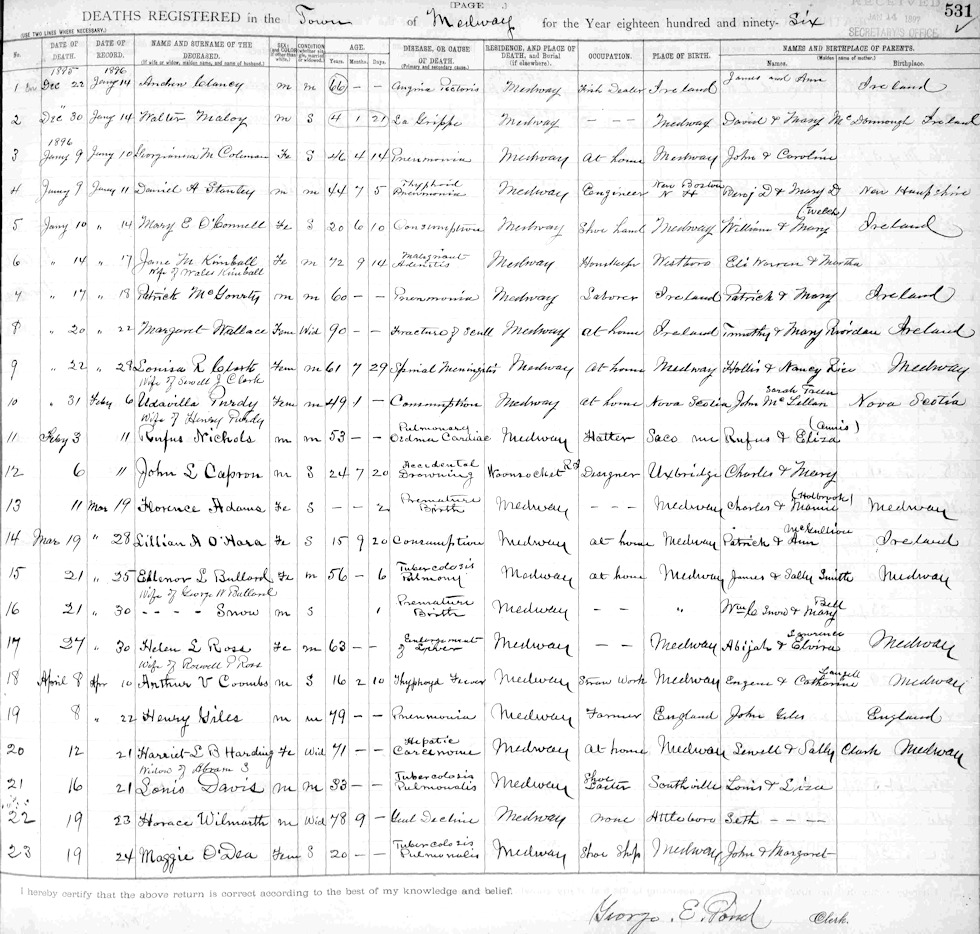 [PAGE
RECEIVED
JAN 14 1897
SECRETARY'S OFFICE
531
DEATHS REGISTERED in the Town of Medway for the Year eighteen hundred and ninety-six
(USE TWO LINES WHERE NECESSARY.)
No. DATE OF DEATH. DATE OF RECORD. NAME AND SURNAME OF THE DECEASED. (If wife or widow, maiden name, and name of husband.) SEX; and COLOR if other than white. CONDITION whether single, married or widowed. AGE. Years. Months. Days. DISEASE, OR CAUSE OF DEATH. (Primary and secondary cause.) RESIDENCE, AND PLACE OF DEATH, and Burial (if elsewhere). OCCUPATION. PLACE OF BIRTH. NAMES AND BIRTHPLACE OF PARENTS. Names. (Maiden name of mother.) Birthplace.
1895 1896
1 Dec 22 Jany 14 Andrew Clancy m m 66 – – Angina Pectoris Medway Fish Dealer Ireland James and Ann Ireland
2 Dec 30 Jany 14 Walter Maloy m S 4 1 21 La Grippe Medway – – Medway David & Mary McDonnough Ireland
1896
3 Jany 9 Jany 10 Georgianna M Coleman Fe S 46 4 14 Pneumonia Medway At home Medway John & Caroline
4 Jany 9 Jany 11 Daniel A Stanley m m 44 7 5 Thyphoid Pneumonia Medway Engineer New Boston N H Benj D & Mary D New Hampshire
5 Jany 10 " 14 Mary E O'Connell Fe S 20 6 10 Consumption Medway Shoe hand Medway William & Mary (Welch) Ireland
6 " 14 " 17 Jane M Kimball Fe m 72 9 14 Malignant Medway Housekeeper Westboro Eli Warren & Martha
Wife of Wales Kimball
7 " 17 " 18 Patrick McGourty m m 60 – – Pneumonia Medway Laborer Ireland Patrick & Mary Ireland
8 " 20 " 22 Margaret Wallace Fem Wid 90 – – Fracture of Scull Medway at home Ireland Timothy & Mary Riordan Ireland
9 " 22 " 29 Louisa R Clark Fem m 61 7 29 Spinal Meningitis Medway At home Medway Hollis & Nancy Rice Medway
Wife of Sewell J Clark
10 " 31 Feby 6 Udavilla Purdy Fem m 49 1 – Consumption Medway at home Nova Scotia John McLellan Sarah Nova Scotia
Wife of Henry Purdy
11 Feby 3 11 Rufus Nichols m m 53 – – Pulmonary Oedma Cardiac Medway Hatter Saco me Rufus & Eliza (Annis)
12 6 " John L Capron m S 24 7 20 Accidental Drowning Woonsocket RI Designer Uxbridge Charles & Mary
13 11 Mar 19 Florence Adams Fe S – – 2 Premature Birth Medway – – Medway Charles & Mamie (Holbrook) Medway
14 Mar 19 " 28 Lillian A O'Hara Fe S 15 9 20 Consumption Medway at home Medway Patrick & Ann Ireland
15 21 " 25 Ellenor L Bullard Fe m 56 – 6 Tubercolosis Pulmony Medway at home Medway James & Sally Smith Medway
Wife of George W Bullard
16 21 " 30 – – – – Snow m S 1 Premature Birth Medway – – " Wm C Snow & Mary Bell
17 27 " 30 Helen L Ross Fe m 63 – – Enlargement of Liver Medway – Medway Abijah & Elvira Lawrence Medway
Wife of Roswell P Ross
18 April 8 Apr 10 Arthur V Coombs m S 16 2 10 Thyphoyd Feever Medway Straw Work Medway Eugene & Catharine Medway
19 8 " 22 Henry Giles m m 79 – – Pneumonia Medway Farmer England John Giles England
20 12 21 Harriet L B Harding Fe Wid 71 – – Hepatic Carcenome Medway at home Medway Sewell & Sally Clark Medway
Widow of Abram S
21 16 21 Louis Davis m m 33 – – Tubercolosis Pulmonalis Medway Shoe Laster Southville Louis & Liza
22 19 23 Horace Wilmarth m Wid 78 9 – Genl Decline Medway none Attleboro Seth – – – –
23 19 24 Maggie O'Dea Fem S 20 – – Tubercolosis Pulmonalis Medway Shoe Shop Medway John & Margaret
I hereby certify that the above return is correct according to the best of my knowledge and belief.
George E. Pond Clerk.